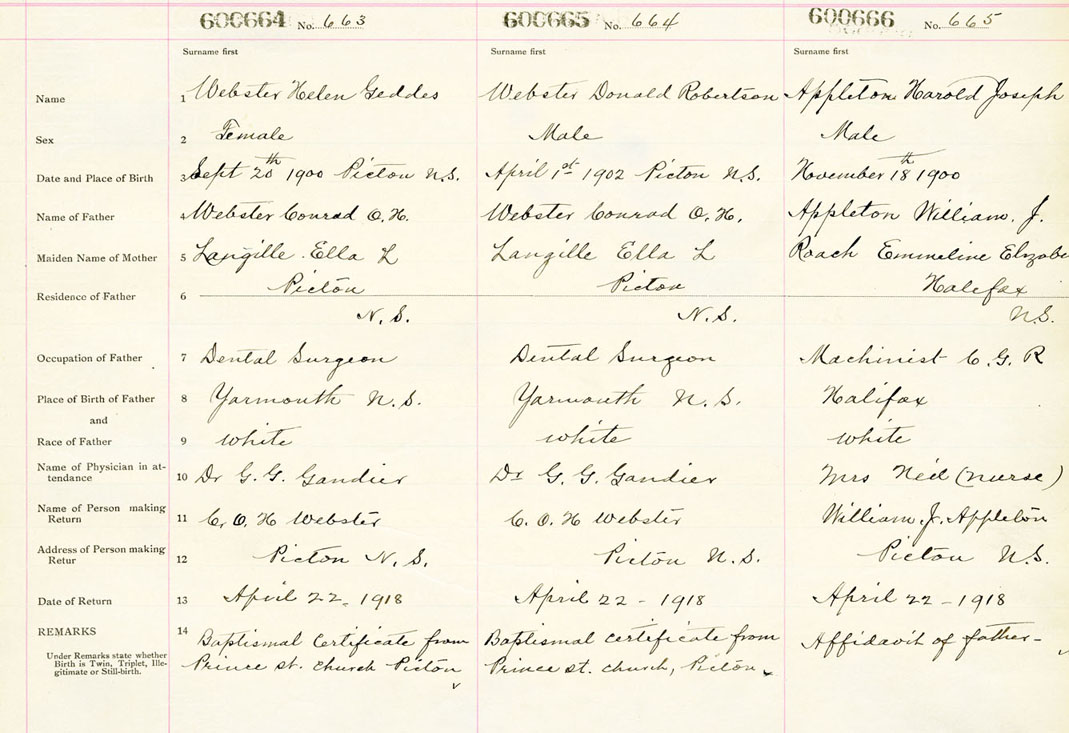 600664 No. 663 600665 No. 664 600666 No. 665
Surname first Surname first Surname first
Name 1 Webster Helen Geddes Webster Donald Robertson Appleton Harold Joseph
Sex 2 Female Male Male
Date and Place of Birth 3 Sept 20th 1900 Picton N.S. April 1st 1902 Picton N.S. November 18th 1900
Name of Father 4 Webster Conrad O. H. Webster Conrad O. H. Appleton William. J.
Maiden Name of Mother 5 Langille Ella L Langille Ella L Roach Emmeline Elizabe
Picton Picton Halifax
Residence of Father 6
N.S. N.S. N.S.
Occupation of Father 7 Dental Surgeon Dental Surgeon Machinist C. G. R
Place of Birth of Father 8 Yarmouth N.S. Yarmouth N.S. Halifax
and
Race of Father 9 white white white
Name of Physician in at-
tendance 10 Dr G. G. Gandier Dr G. G. Gandier Mrs Neil (nurse)
Name of Person making
Return 11 C. O. H Webster C. O. H Webster William. J. Appleton
Address of Person making
Retur 12 Picton N.S. Picton N.S. Picton N.S.
Date of Return 13 April 22 - 1918 April 22 - 1918 April 22 - 1918
REMARKS 14 Baptismal Certificate from Baptismal certificate from Affidavit of father -
Under Remarks state whether
Birth is Twin, Triplet, Ille-
gitimate or Still-birth. Prince st. church Picton Prince st. church, Picton